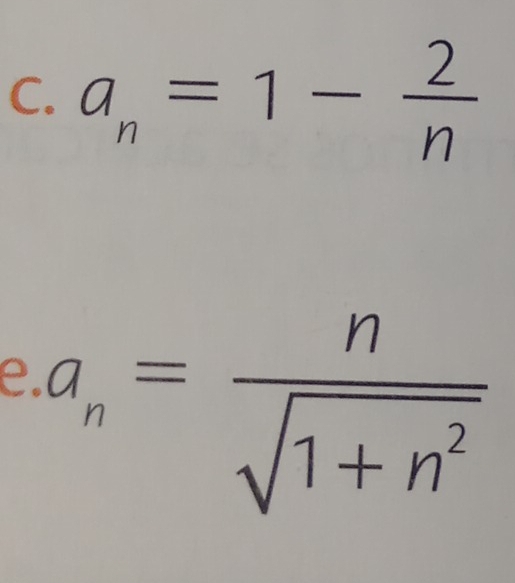 c. aₙ = 1 − 2/n
e. aₙ = n/√(1 + n²)